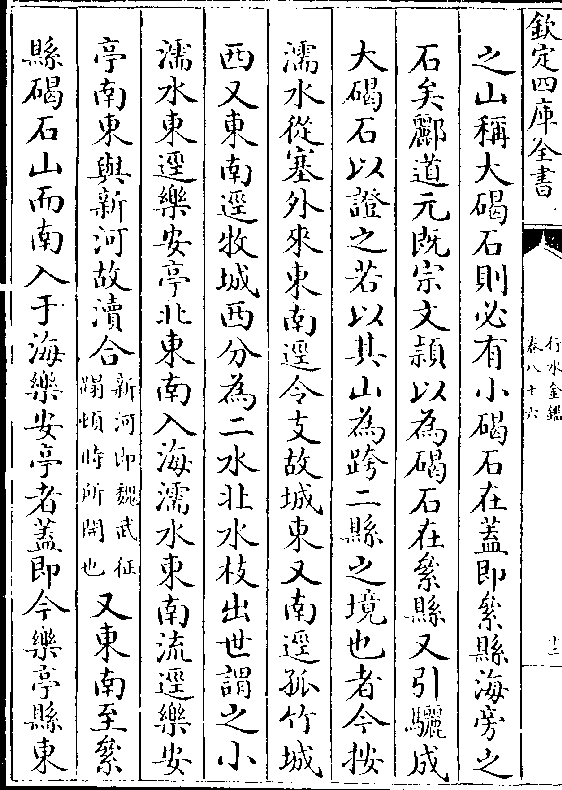 欽定四庫全書
行水金鑑
卷八十六
十二
之山稱大碣石則必有小碣石在蓋即絫縣海旁之
石矣酈道元既宗文穎以為碣石在絫縣又引驪成
大碣石以證之若以其山為跨二縣之境也者今按
濡水從塞外來東南逕令支故城東又南逕孤竹城
西又東南逕牧城西分為二水北水枝出世謂之小
濡水東逕樂安亭北東南入海濡水東南流逕樂安
亭南東與新河故瀆合新河即魏武征蹋頓時所開也又東南至絫
縣碣石山而南入于海樂安亭者蓋即今樂亭縣東